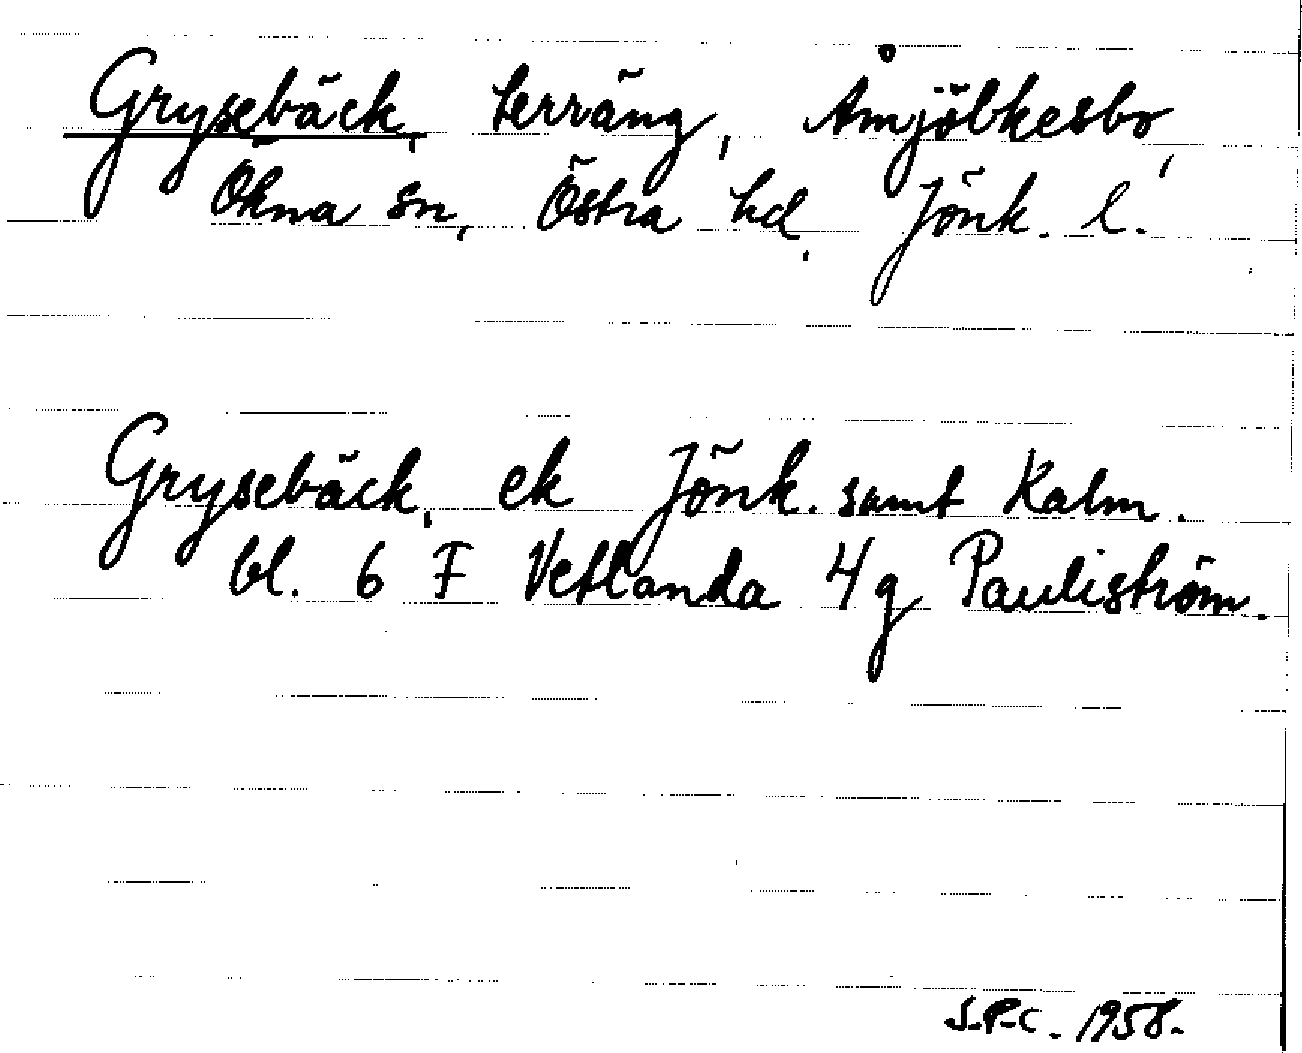 Grysebäck, terräng, Åmjölkesbo,
Ökna sn, Östra hd, Jönk. l.
Grysebäck, ek Jönk. samt Kalm.
bl. 6 F Vetlanda 4g Pauliström.
S.P-C. 1958.